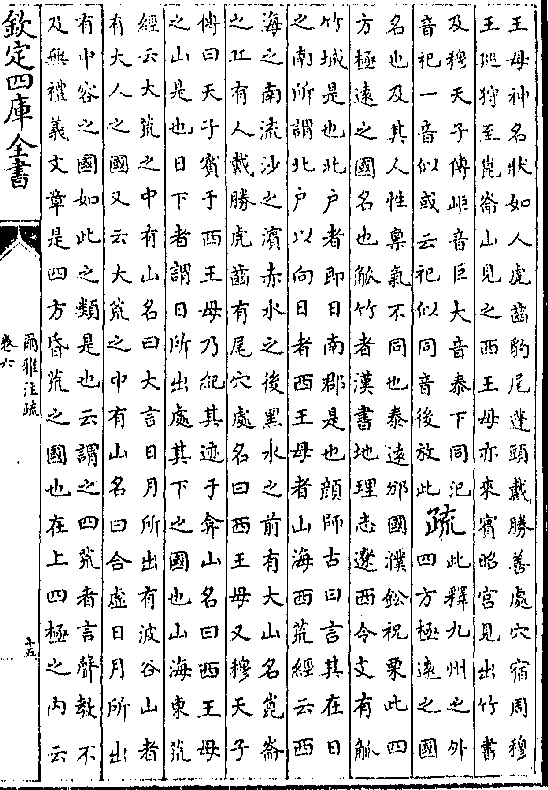 王母神名狀如人虎齒豹尾蓬頭戴勝善處穴宿周穆
王巡狩至崑崙山見之西王母亦來賓昭宮見出竹書
及穆天子傳岠音巨大音泰下同氾
音祀一音似或云祀似同音後放此
疏
此釋九州之外
四方極遠之國
名也及其人性稟氣不同也泰遠邠國濮鈆祝栗此四
方極遠之國名也觚竹者漢書地理志遼西令支有觚
竹城是也北户者即日南郡是也顔師古曰言其在日
之南所謂北户以向日者西王母者山海西荒經云西
海之南流沙之濱赤水之後黑水之前有大山名崑崙
之丘有人戴勝虎齒有尾穴處名曰西王母又穆天子
傳曰天子賓于西王母乃紀其迹于弇山名曰西王母
之山是也日下者謂日所出處其下之國也山海東荒
經云大荒之中有山名曰大言日月所出有波谷山者
有大人之國又云大荒之中有山名曰合虛日月所出
有中容之國如此之類是也云謂之四荒者言聲教不
及無禮義文章是四方昏荒之國也在上四極之內云
欽定四庫全書
爾雅注疏
卷六
十五